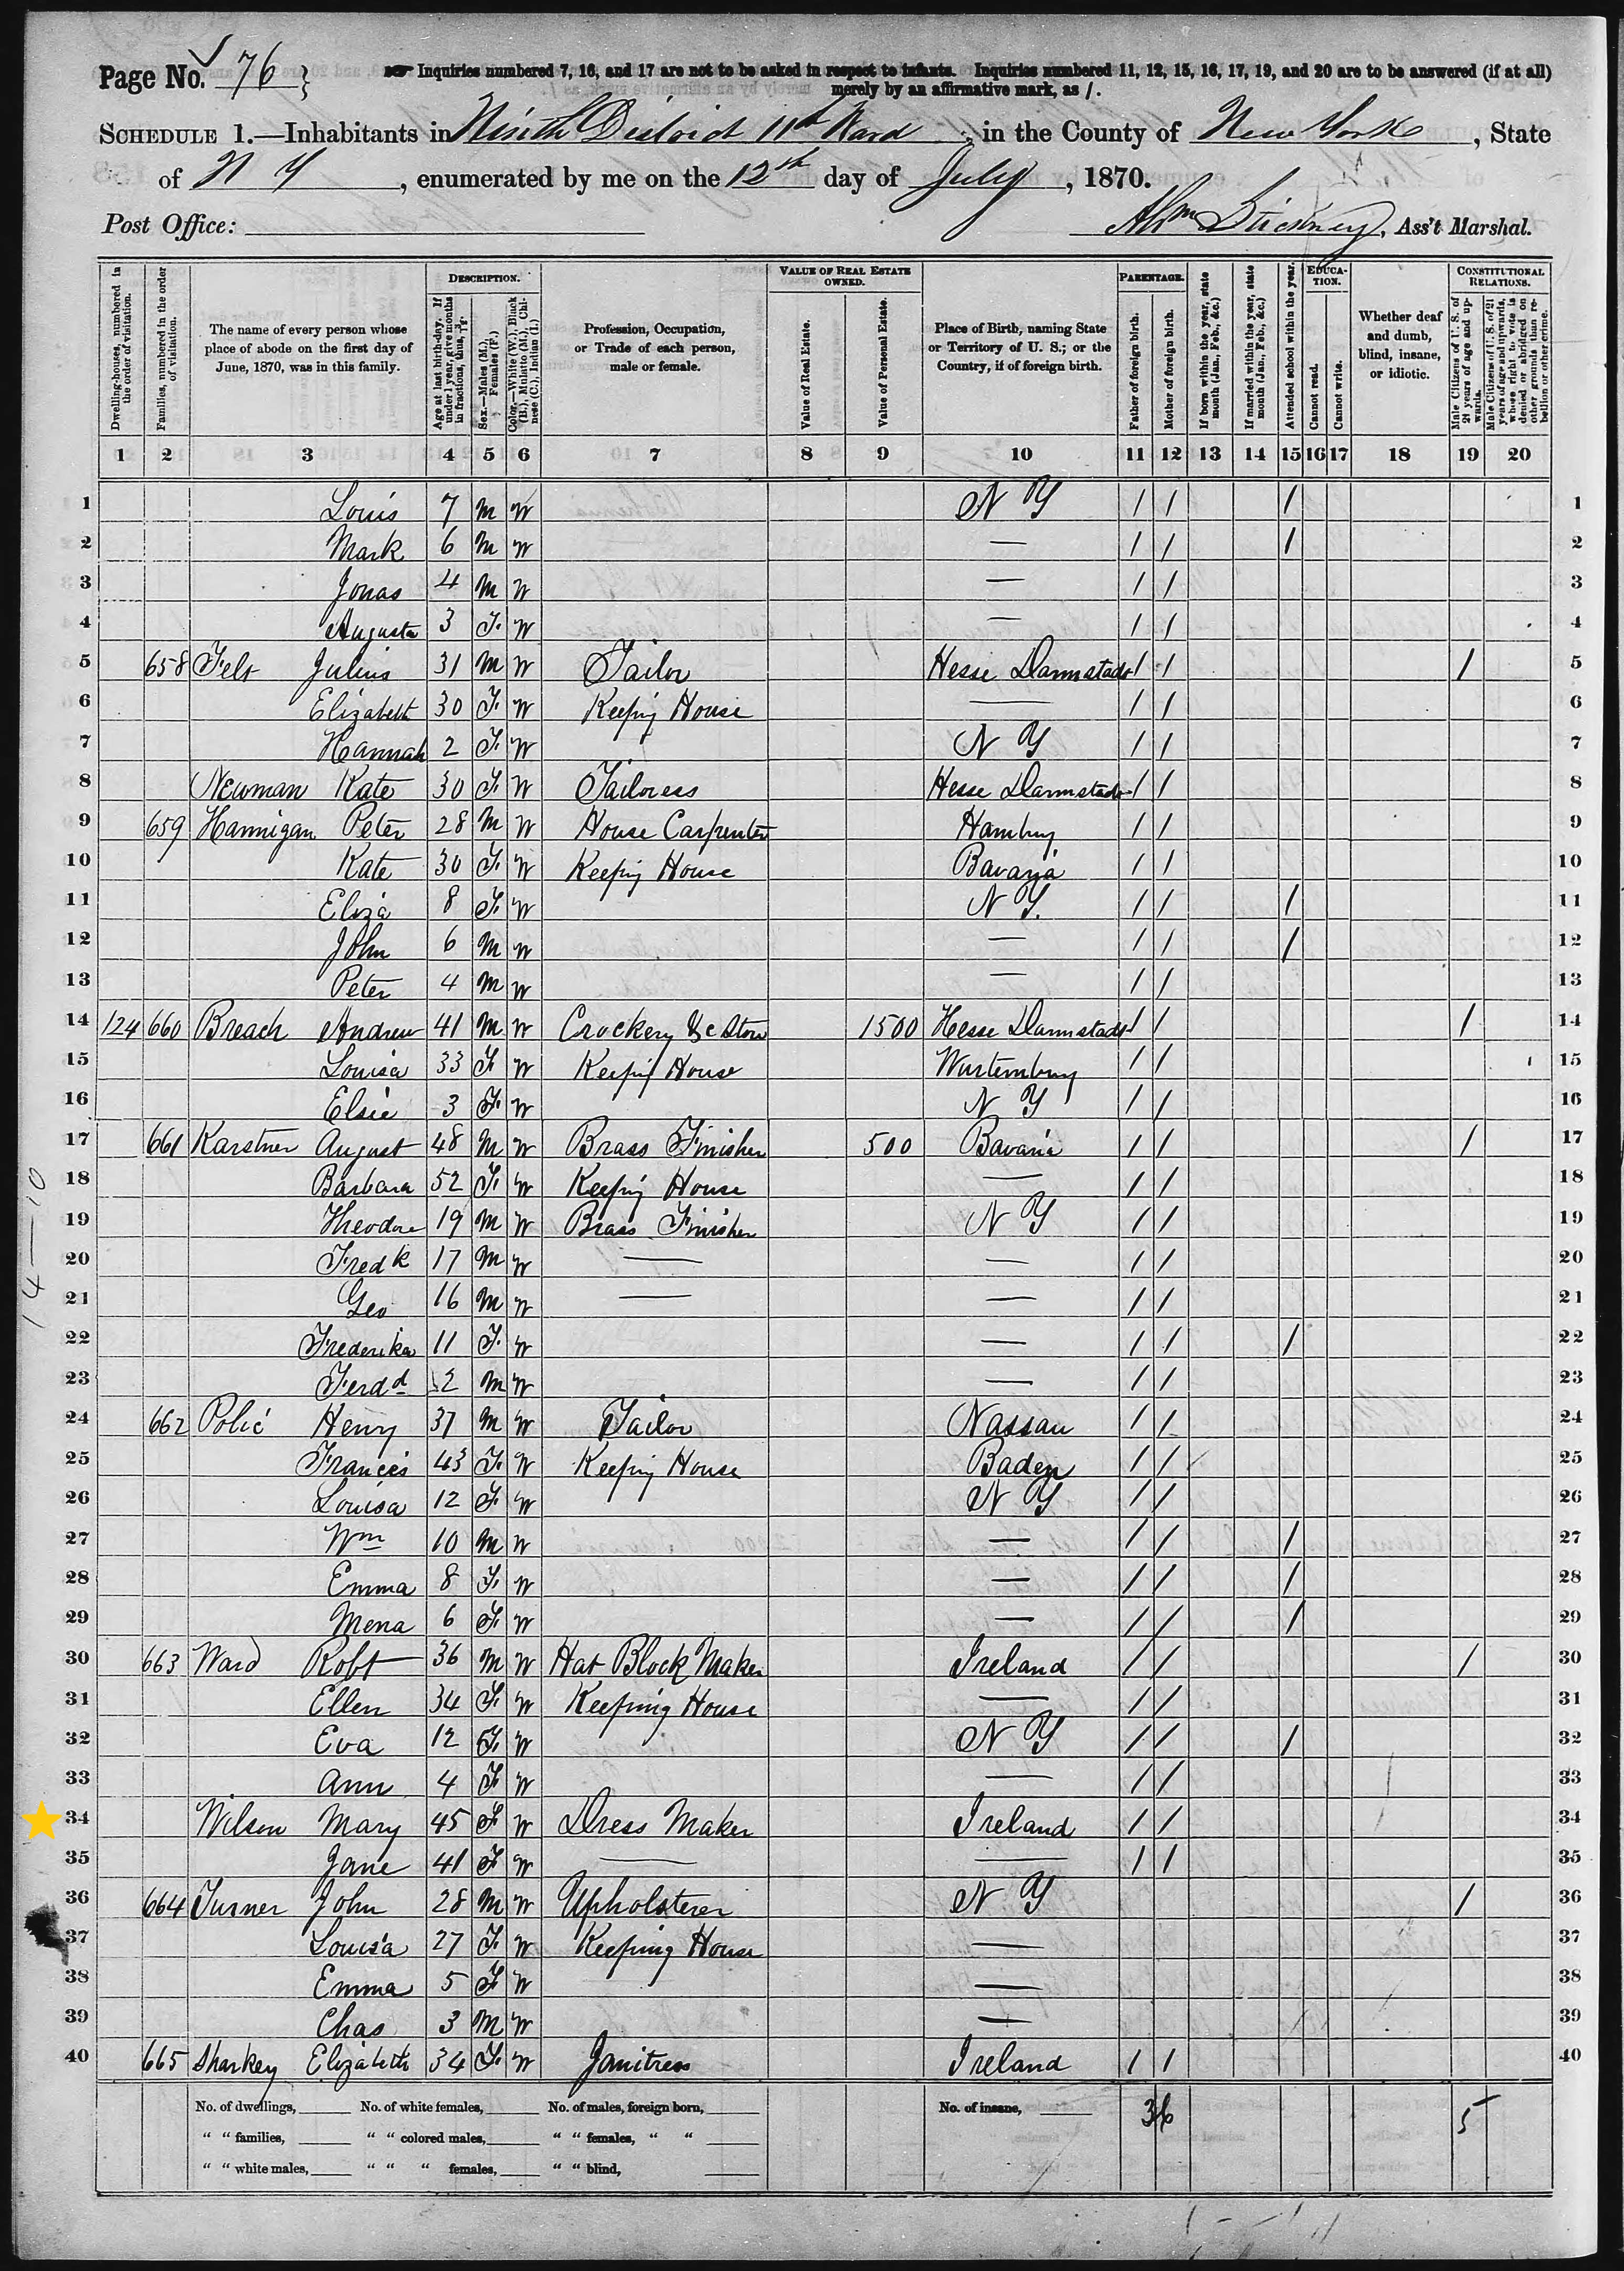 Page No. 76
Inquiries numbered 7, 16, and 17 are not to be asked in respect to infants. Inquiries numbered 11, 12, 15, 16, 17, 19, and 20 are to be answered (if at all)
merely by an affirmative mark, as /.
SCHEDULE 1.—Inhabitants in Ninth District 11th Ward, in the County of New York, State
of N Y, enumerated by me on the 12th day of July, 1870.
Post Office: , Ass't Marshal.
Dwelling-houses, numbered in the order of visitation.
Families, numbered in the order of visitation.
The name of every person whose place of abode on the first day of June, 1870, was in this family.
DESCRIPTION.
Age at last birth-day. If under 1 year, give months in fractions, thus, 3/12.
Sex.—Males (M.), Females (F.)
Color.—White (W.), Black (B.), Mulatto (M.), Chinese (C.), Indian (I.)
Profession, Occupation, or Trade of each person, male or female.
VALUE OF REAL ESTATE OWNED.
Value of Real Estate.
Value of Personal Estate.
Place of Birth, naming State or Territory of U. S.; or the Country, if of foreign birth.
PARENTAGE.
Father of foreign birth.
Mother of foreign birth.
If born within the year, state month (Jan., Feb., &c.)
If married within the year, state month (Jan., Feb., &c.)
Attended school within the year.
EDUCATION.
Cannot read.
Cannot write.
Whether deaf and dumb, blind, insane, or idiotic.
CONSTITUTIONAL RELATIONS.
Male Citizens of U. S. of 21 years of age and upwards.
Male Citizens of U. S. of 21 years of age and upwards, whose right to vote is denied or abridged on other grounds than rebellion or other crime.
1 2 3 4 5 6 7 8 9 10 11 12 13 14 15 16 17 18 19 20
1 Louis 7 M W N Y / / / 1
2 Mark 6 M W — / / / 2
3 Jonas 4 M W — / / 3
4 Augusta 3 F. W — / / 4
5 658 Felt Julius 31 M W Tailor Hesse Darmstadt / / / 5
6 Elizabeth 30 F. W Keeping House — / / 6
7 Hannah 2 F. W N Y / / 7
8 Newman Kate 30 F. W Tailoress Hesse Darmstadt / / 8
9 659 Hannigan Peter 28 M W House Carpenter Hamburg / / 9
10 Kate 30 F. W Keeping House Bavaria / / 10
11 Eliza 8 F. W N Y. / / / 11
12 John 6 M W — / / / 12
13 Peter 4 M W — / / 13
14 124 660 Breach Andrew 41 M W Crockery &c Store 1500 Hesse Darmstadt / / / 14
15 Louisa 33 F. W Keeping House Wurtemburg / / 15
16 Elsie 3 F. W N Y / / 16
17 661 Karstner August 48 M W Brass Finisher 500 Bavaria / / / 17
18 Barbara 52 F. W Keeping House — / / 18
19 Theodore 19 M W Brass Finisher N Y / / 19
20 Fredk 17 M W — — / / 20
21 Geo 16 M W — — / / 21
22 Frederika 11 F. W — / / / 22
23 Ferdd 2 M W — / / 23
24 662 Polié Henry 37 M W Tailor Nassau / / 24
25 Frances 43 F. W Keeping House Baden / / 25
26 Louisa 12 F. W N Y / / 26
27 Wm 10 M W — / / / 27
28 Emma 8 F. W — / / / 28
29 Mena 6 F. W — / / / 29
30 663 Ward Robt 36 M W Hat Block Maker Ireland / / / 30
31 Ellen 34 F. W Keeping House — / / 31
32 Eva 12 F. W N Y / / / 32
33 Ann 4 F. W — / / 33
34 Wilson Mary 45 F. W Dress Maker Ireland / / 34
35 Jane 41 F. W — — / / 35
36 664 Turner John 28 M W Upholsterer N Y / 36
37 Louisa 27 F. W Keeping House — 37
38 Emma 5 F. W — 38
39 Chas 3 M W — 39
40 665 Sharkey Elizabeth 34 F. W Janitress Ireland / / 40
14—10
No. of dwellings, No. of white females, No. of males, foreign born, No. of insane, 36 5
" " families, " " colored males, " " females, " "
" " white males, " " " females, " " blind,